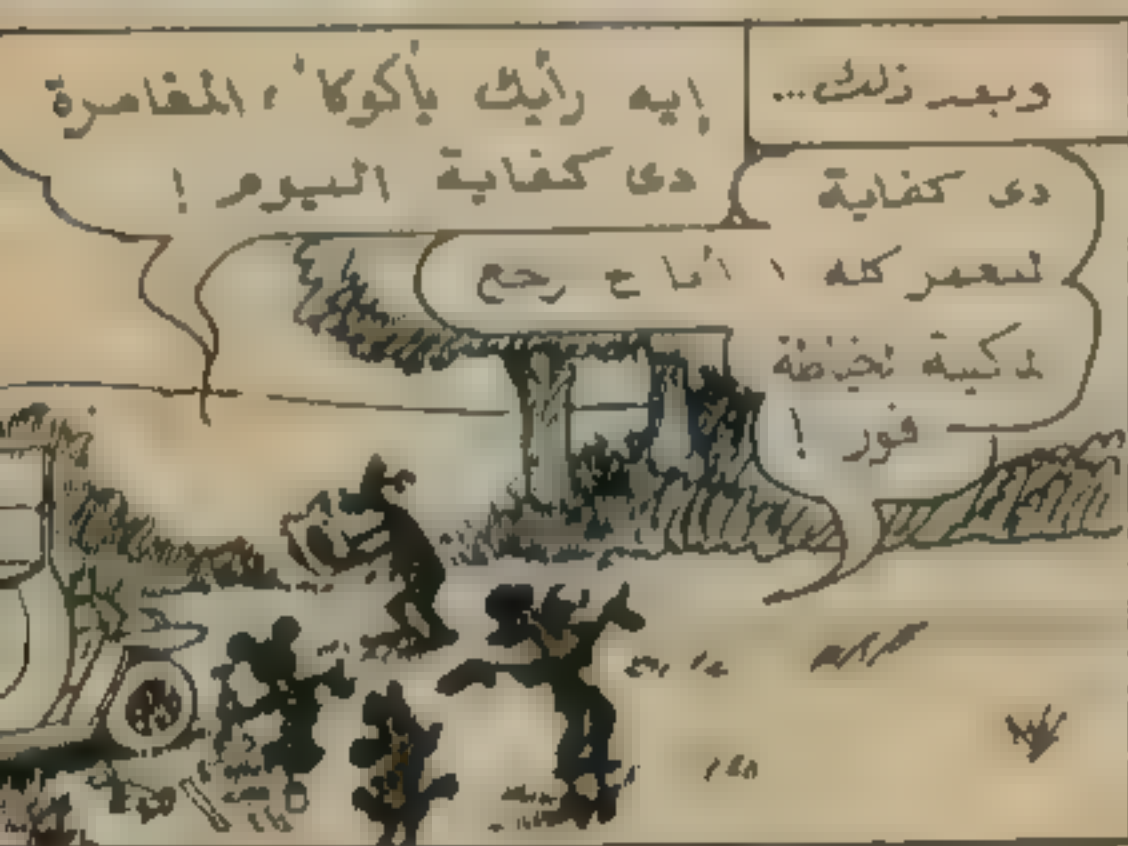 وبعد ذلك...
إيه رأيك يأكوكا ، المغامرة
دى كفاية اليوم !
دى كفاية
للعمر كله ! أنا ح رجع
فور !